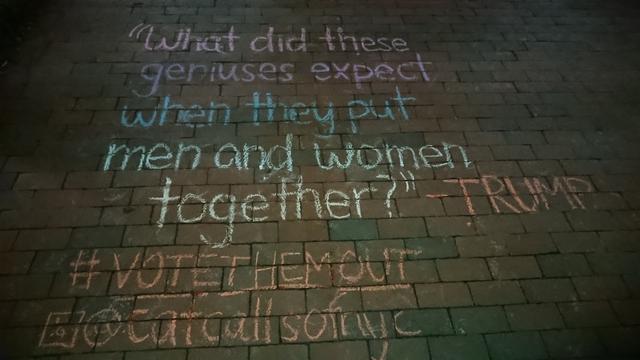 "What did these
geniuses expect
when they put
men and women
together?" -TRUMP
#VOTETHEMOUT
@catcallsofnyc